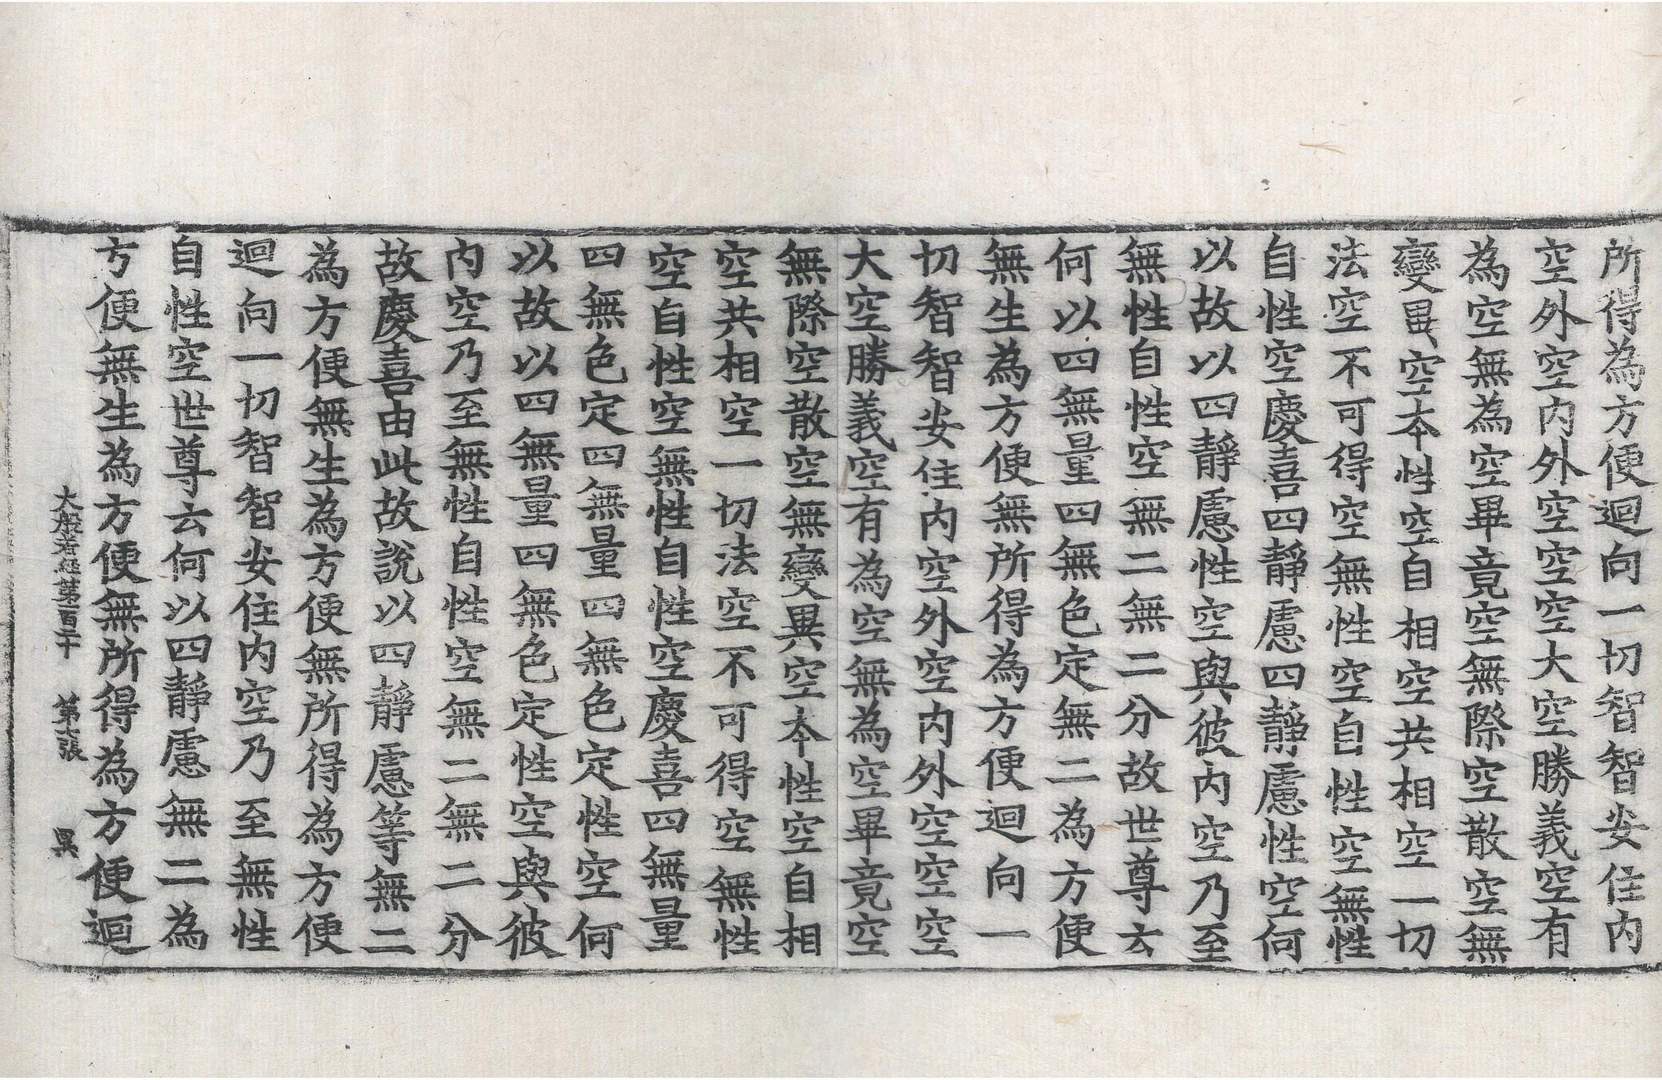 所得為方便迴向一切智智安住内
空外空内外空空空大空勝義空有
為空無為空畢竟空無際空散空無
變異空夲性空自相空共相空一切
法空不可得空無性空自性空無性
自性空慶喜四靜慮四靜慮性空何
以故以四靜慮性空與彼内空乃至
無性自性空無二無二分故世尊云
何以四無量四無色定無二為方便
無生為方便無所得為方便迴向一
切智智安住内空外空内外空空空
大空勝義空有為空無為空畢竟空
無際空散空無變異空夲性空自相
空共相空一切法空不可得空無性
空自性空無性自性空慶喜四無量
四無色定四無量四無色定性空何
以故以四無量四無色定性空與彼
内空乃至無性自性空無二無二分
故慶喜由此故說以四靜慮等無二
為方便無生為方便無所得為方便
迴向一切智智安住内空乃至無性
自性空世尊云何以四靜慮無二為
方便無生為方便無所得為方便迴
大般若經第一百二十 第七張 昃